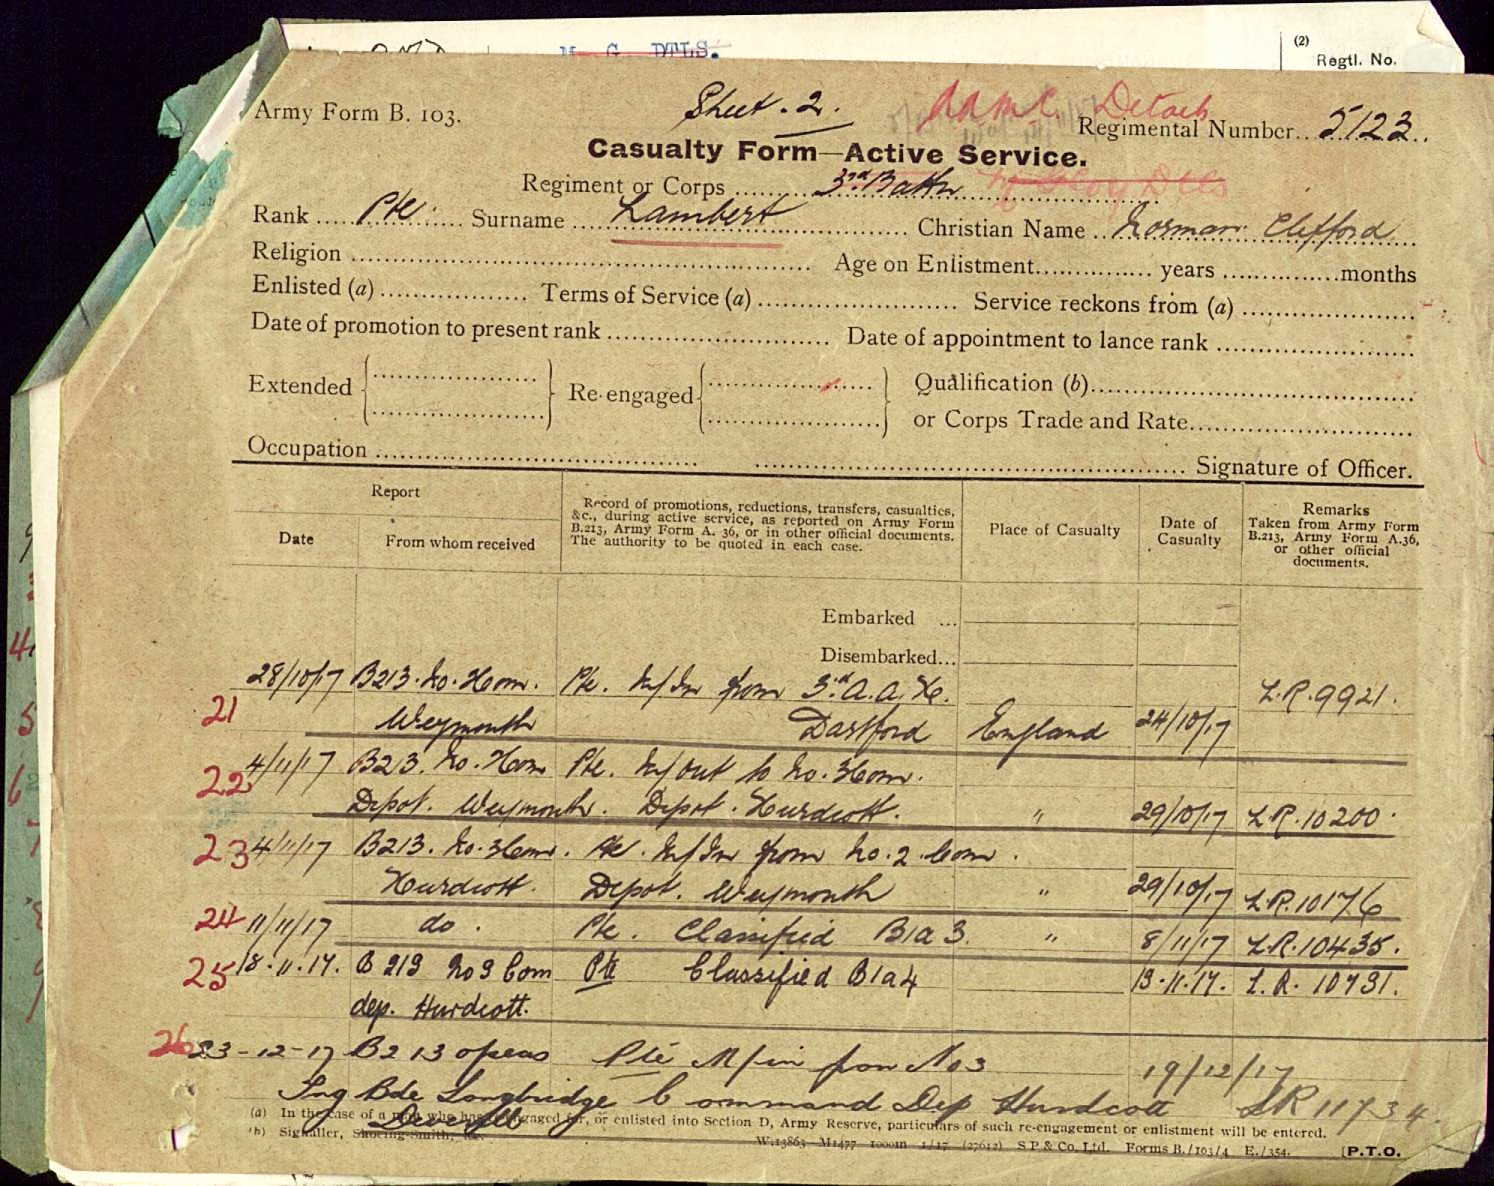 M. G. DTLS.
(2)
Regtl. No.
Army Form B. 103.
Sheet. 2.
AAMC. Details
Regimental Number.. 5123..
Casualty Form—Active Service.
Regiment or Corps ......... 3rd Battn
Rank .... Pte. .... Surname .... Lambert .... Christian Name .. Norman Clifford
Religion .... Age on Enlistment ............... years ...............months
Enlisted (a) .................. Terms of Service (a) .... Service reckons from (a) ....
Date of promotion to present rank .... Date of appointment to lance rank ....
Extended .... Re-engaged .... Qualification (b)....
or Corps Trade and Rate....
Occupation .... Signature of Officer.
Report
Date
From whom received
Record of promotions, reductions, transfers, casualties,
&c., during active service, as reported on Army Form
B.213, Army Form A. 36, or in other official documents.
The authority to be quoted in each case.
Place of Casualty
Date of
Casualty
Remarks
Taken from Army Form
B.213, Army Form A.36,
or other official
documents.
Embarked ...
Disembarked...
28/10/17 B213. No. Com. Pte. M/In from 3rd A.A.H. L.R. 9921.
21 Weymouth Dartford England 24/10/17
22 4/11/17 B23. No. Com Pte. M/out to No. 3 Com.
Depot. Weymouth. Depot. Hurdcott. " 29/10/17 L.R. 10200.
23 4/11/17 B213. No. 3 Com. Pte. M/In from No. 2. Com.
Hurdcott. Depot. Weymouth " 29/10/17 L.R. 10176
24 11/11/17 do. Pte. Classified B1a3. " 8/11/17 L.R. 10435.
25 18.11.17. B 213 No 3 Com Pte Classified B1a4 13.11.17. L.R. 10731.
dep. Hurdcott.
26 23-12-17 B213 o/seas Pte M/in from No 3 19/12/17
Tng Bde Longbridge Command Dep Hurdcott LR 11734.
Deverill
(a) In the case of a man who has re-engaged for, or enlisted into Section D, Army Reserve, particulars of such re-engagement or enlistment will be entered.
(b) Signaller, Shoeing-Smith, &c.
W.13863—M1477 1000m 1/17 (27612) S P & Co. Ltd. Forms B./103/4 E./354.
[P.T.O.